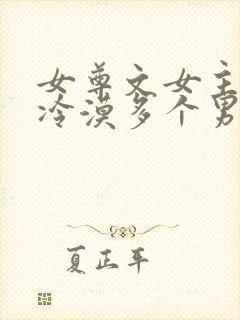 女尊文女主
冷漠多个男
夏正平